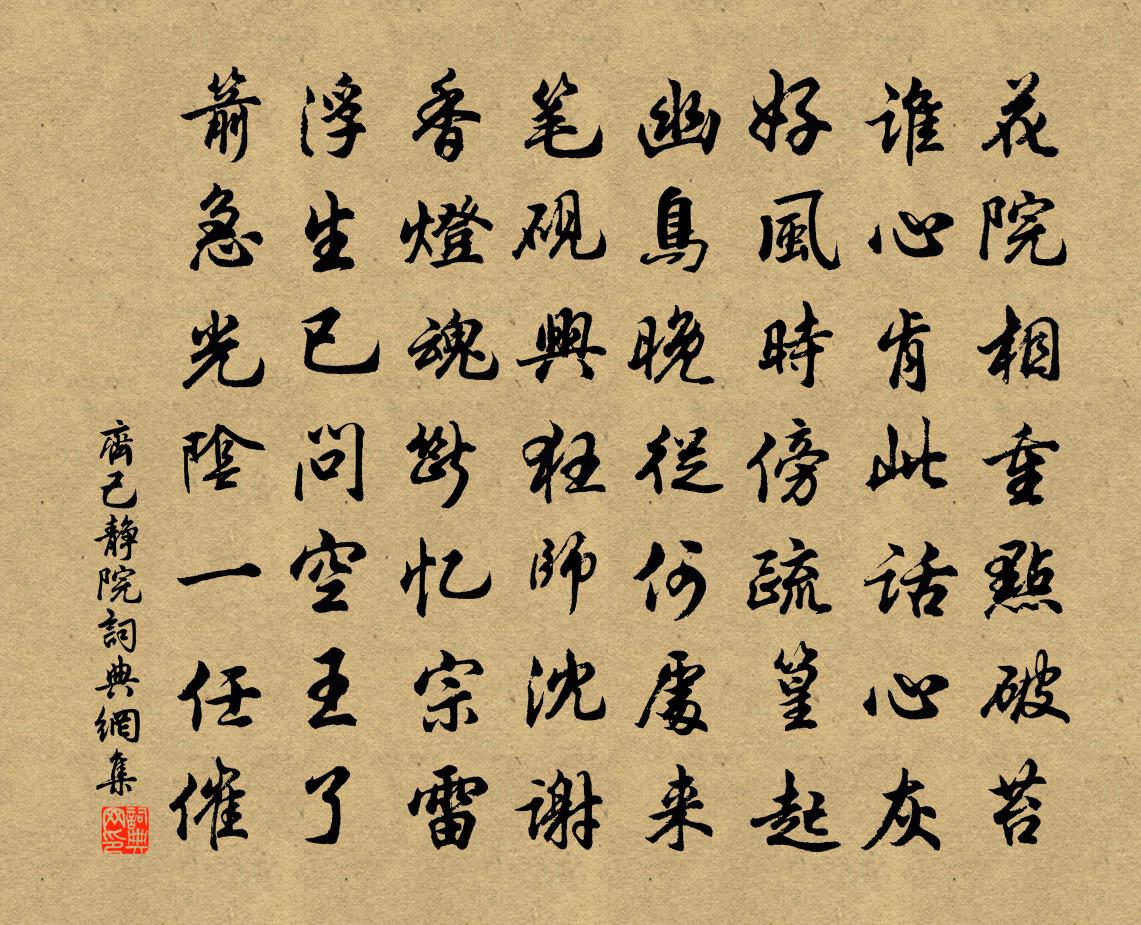 花院相重點破苔
谁心肯此话心灰
好風時傍疏篁起
幽鳥晚從何處来
笔砚興狂師沈谢
香燈魂斷忆宗雷
浮生已问空王了
箭急光陰一任催
齊己静院詞典網集
詞典网印